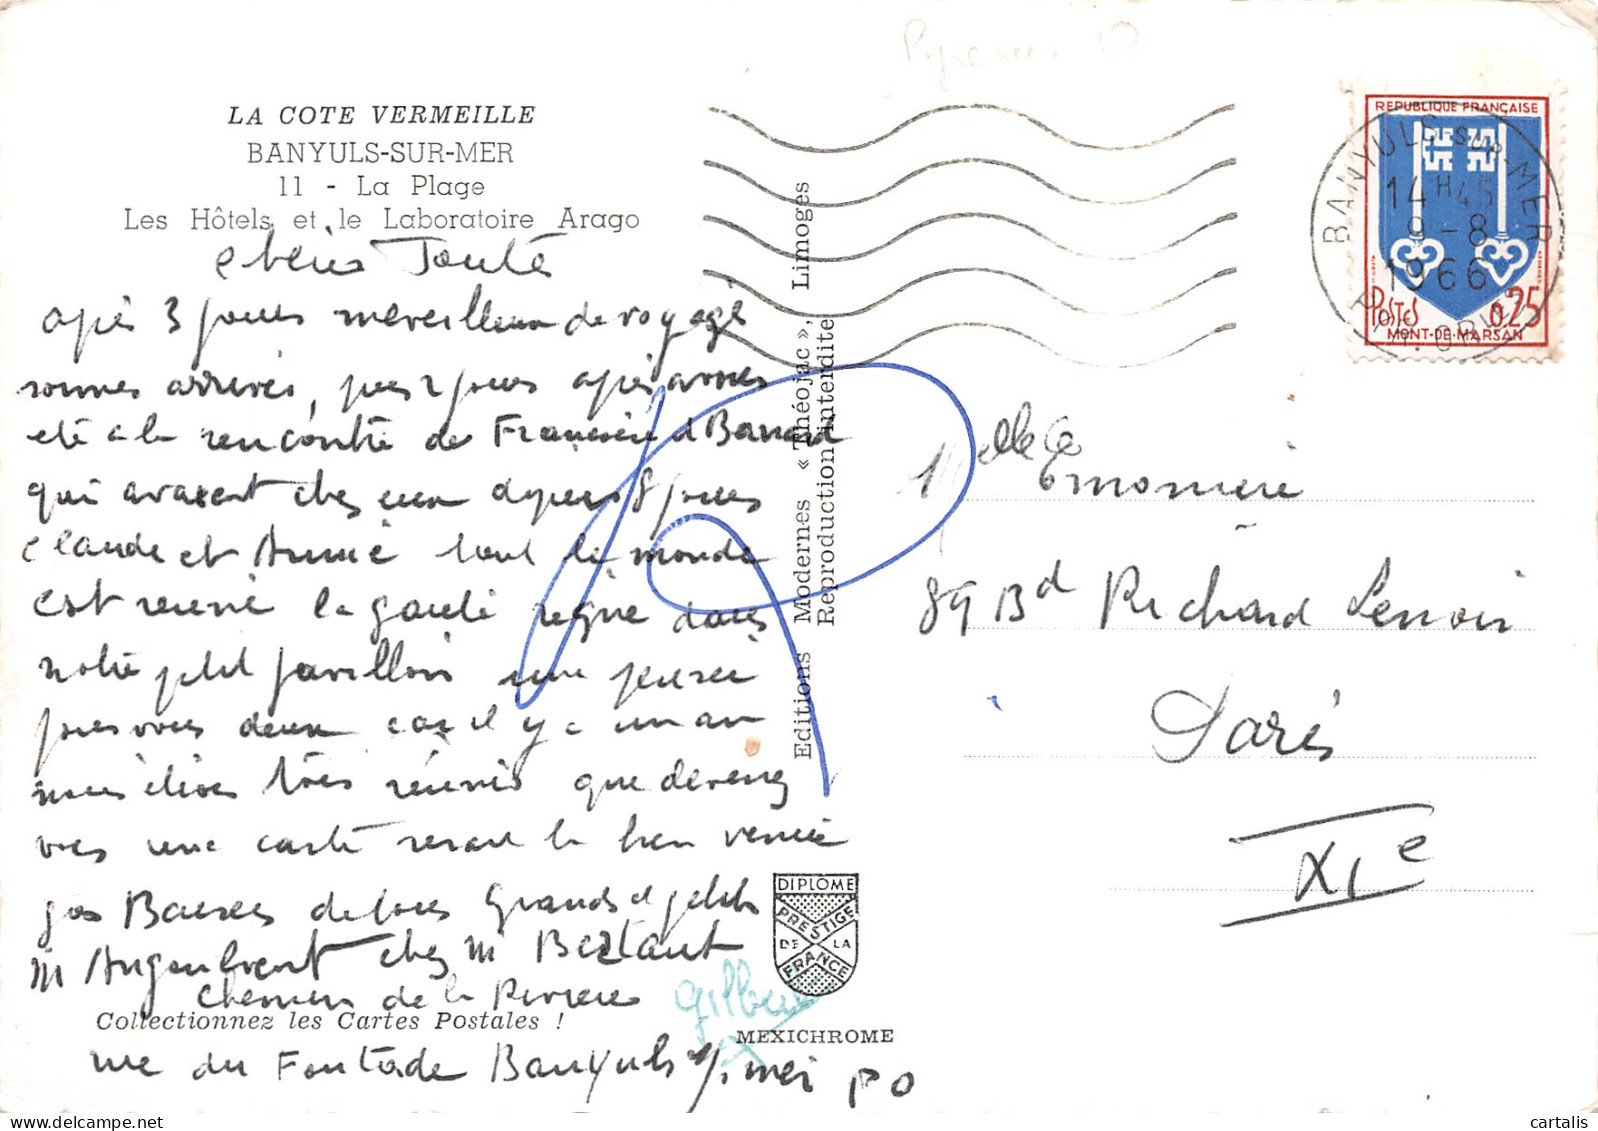 Pyrenees O
LA COTE VERMEILLE
BANYULS-SUR-MER
11 - La Plage
Les Hôtels et le Laboratoire Arago
Tante
après 3 jours merveilleux de voyage
sommes arrivés, puis 2 jours après avons
été à la rencontre de Francine et Bernard
qui avaient chez eux depuis 8 jours
Claude et Annie tout le monde
est réuni la gaieté règne dans
notre petit pavillon une pensée
pour vous deux car il y a un an
nous étions très réunis que devenez
vous une carte serait la bien venue
gros Baises de tous Grands et petits
M chez M
chemin de la Rivière
Collectionnez les Cartes Postales !
rue du Fontade Banyuls s/ mer P O
Gilbert
Editions Modernes « Théojac », Limoges
Reproduction interdite
DIPLOME
PRESTIGE
DE LA
FRANCE
MEXICHROME
REPUBLIQUE FRANÇAISE
POSTES 0,25
MONT-DE-MARSAN
BANYULS-SUR-MER
14H45
9-8
1966
Melle
89 Bd Richard Lenoir
Paris
XIe
cartalis